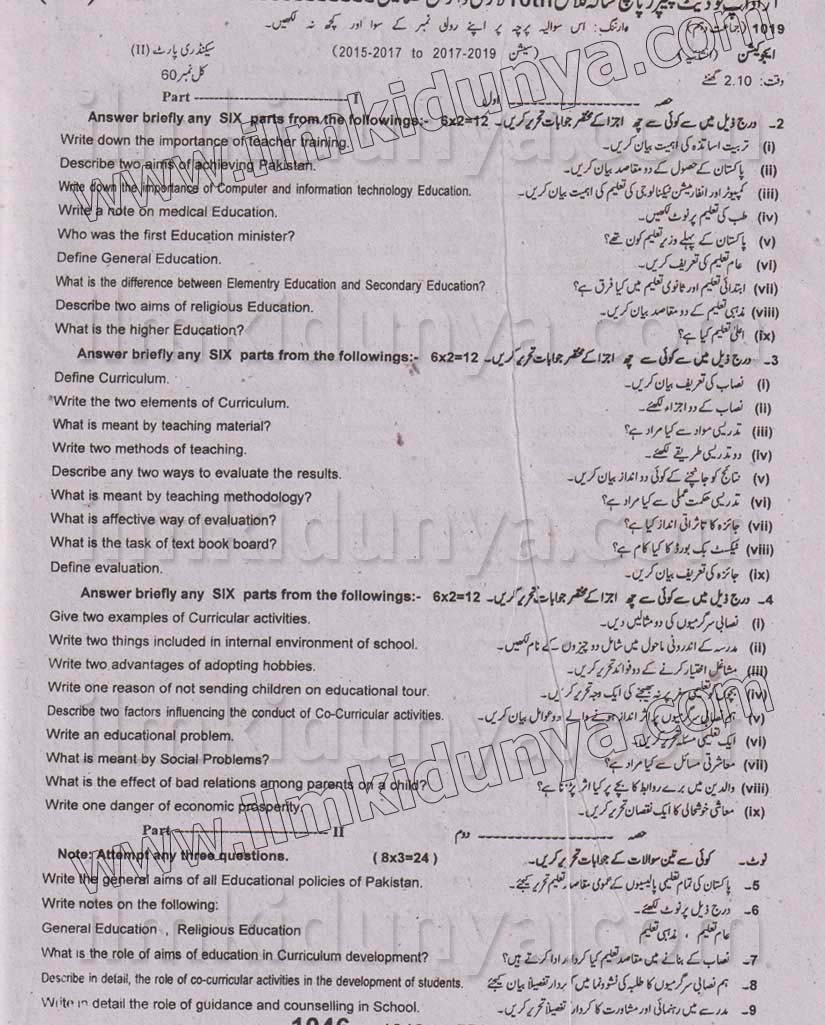 1019 (جماعت دہم) وارننگ: اس سوالیہ پرچہ پر اپنے رولی نمبر کے سوا اور کچھ نہ لکھیں۔
ایجوکیشن (سیشن 2015-2017 to 2017-2019) سیکنڈری پارٹ (II)
وقت: 2.10 گھنٹے کل نمبر 60
Part I حصہ اول
Answer briefly any SIX parts from the followings:- 6x2=12 2۔ درج ذیل میں سے کوئی سے چھ اجزا کے مختصر جوابات تحریر کریں۔
Write down the importance of teacher training. (i) تربیت اساتذہ کی اہمیت بیان کریں۔
Describe two aims of achieving Pakistan. (ii) پاکستان کے حصول کے دو مقاصد بیان کریں۔
Write down the importance of Computer and information technology Education. (iii) کمپیوٹر اور انفارمیشن ٹیکنالوجی کی تعلیم کی اہمیت بیان کریں۔
Write a note on medical Education. (iv) طب کی تعلیم پر نوٹ لکھیں۔
Who was the first Education minister? (v) پاکستان کے پہلے وزیر تعلیم کون تھے؟
Define General Education. (vi) عام تعلیم کی تعریف کریں۔
What is the difference between Elementry Education and Secondary Education? (vii) ابتدائی تعلیم اور ثانوی تعلیم میں کیا فرق ہے؟
Describe two aims of religious Education. (viii) مذہبی تعلیم کے دو مقاصد بیان کریں۔
What is the higher Education? (ix) اعلیٰ تعلیم کیا ہے؟
Answer briefly any SIX parts from the followings:- 6x2=12 3۔ درج ذیل میں سے کوئی سے چھ اجزا کے مختصر جوابات تحریر کریں۔
Define Curriculum. (i) نصاب کی تعریف بیان کریں۔
Write the two elements of Curriculum. (ii) نصاب کے دو اجزاء لکھئے۔
What is meant by teaching material? (iii) تدریسی مواد سے کیا مراد ہے؟
Write two methods of teaching. (iv) دو تدریسی طریقے لکھئے۔
Describe any two ways to evaluate the results. (v) نتائج کو جانچنے کے کوئی دو انداز بیان کریں۔
What is meant by teaching methodology? (vi) تدریسی حکمت عملی سے کیا مراد ہے؟
What is affective way of evaluation? (vii) جائزہ کا تاثراتی انداز کیا ہے؟
What is the task of text book board? (viii) ٹیکسٹ بک بورڈ کا کیا کام ہے؟
Define evaluation. (ix) جائزہ کی تعریف بیان کریں۔
Answer briefly any SIX parts from the followings:- 6x2=12 4۔ درج ذیل میں سے کوئی سے چھ اجزا کے مختصر جوابات تحریر کریں۔
Give two examples of Curricular activities. (i) نصابی سرگرمیوں کی دو مثالیں دیں۔
Write two things included in internal environment of school. (ii) مدرسہ کے اندرونی ماحول میں شامل دو چیزوں کے نام لکھیں۔
Write two advantages of adopting hobbies. (iii) مشاغل اختیار کرنے کے دو فوائد تحریر کریں۔
Write one reason of not sending children on educational tour. (iv) بچوں کو تعلیمی سفر پر نہ بھیجنے کی ایک وجہ تحریر کریں۔
Describe two factors influencing the conduct of Co-Curricular activities. (v) ہم نصابی سرگرمیوں پر اثر انداز ہونے والے دو عوامل بیان کریں۔
Write an educational problem. (vi) ایک تعلیمی مسئلہ تحریر کریں۔
What is meant by Social Problems? (vii) معاشرتی مسائل سے کیا مراد ہے؟
What is the effect of bad relations among parents on a child? (viii) والدین میں برے روابط کا بچے پر کیا اثر پڑتا ہے؟
Write one danger of economic prosperity. (ix) معاشی خوشحالی کا ایک نقصان تحریر کریں۔
Part II حصہ دوم
Note: Attempt any three questions. (8x3=24) نوٹ۔ کوئی سے تین سوالات کے جوابات تحریر کریں۔
Write the general aims of all Educational policies of Pakistan. 5۔ پاکستان کی تمام تعلیمی پالیسیوں کے عمومی مقاصد تعلیم تحریر کیجئے۔
Write notes on the following: 6۔ درج ذیل پر نوٹ لکھئے۔
General Education , Religious Education عام تعلیم ، مذہبی تعلیم
What is the role of aims of education in Curriculum development? 7۔ نصاب کے بنانے میں مقاصد تعلیم کیا کردار ادا کرتے ہیں؟
Describe in detail, the role of co-curricular activities in the development of students. 8۔ ہم نصابی سرگرمیوں کا طلبہ کی نشوونما میں کردار تفصیلاً بیان کیجئے
Write in detail the role of guidance and counselling in School. 9۔ مدرسے میں رہنمائی اور مشاورت کا کردار تفصیلاً تحریر کریں۔
www.ilmkidunya.com
www.ilmkidunya.com
ilmkidunya.com
ilmkidunya.com
ilmkidunya.com
ilmkidunya.com
ilmkidunya.com